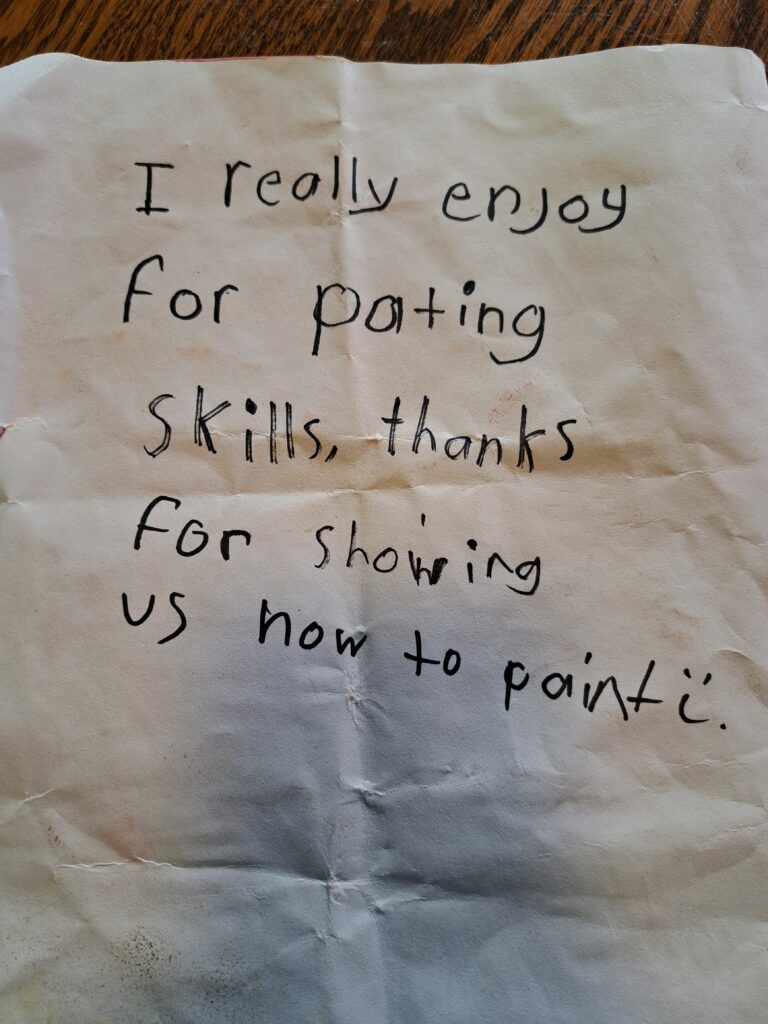 I really enjoy
for pating
skills, thanks
for showing
us how to paint :.